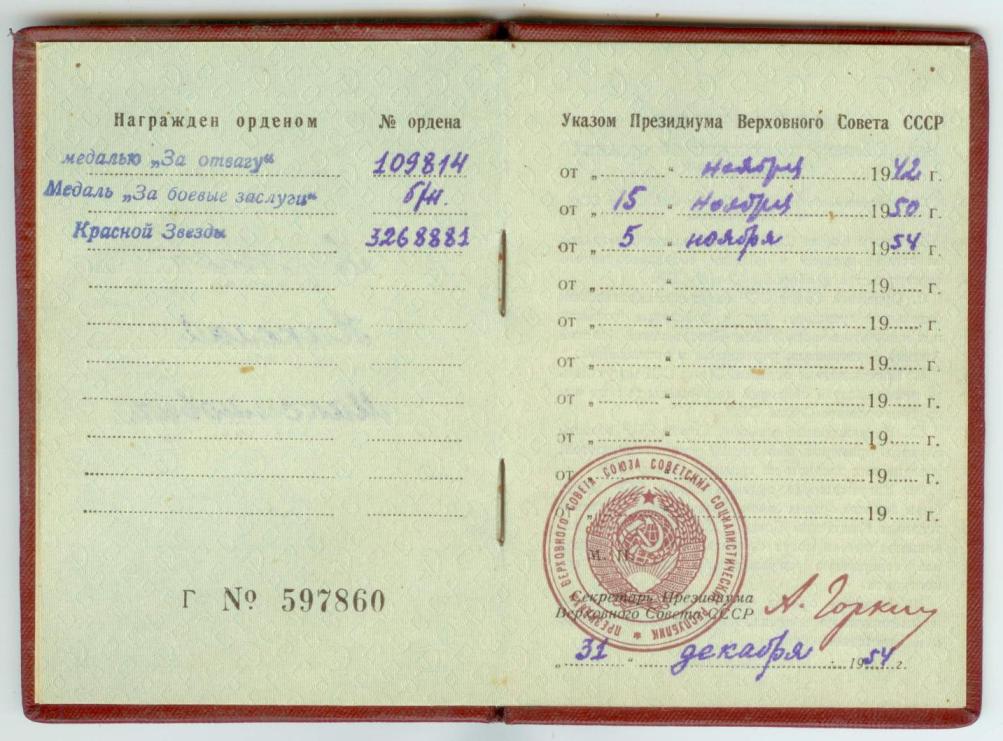 Награжден орденом № ордена
медалью „За отвагу“ 109814
Медаль „За боевые заслуги“ б/н.
Красной Звезды 3268881
Г № 597860
Указом Президиума Верховного Совета СССР
от „ “ ноября 1942 г.
от „ 15 “ ноября 1950 г.
от „ 5 “ ноября 1954 г.
от „ “ 19 г.
от „ “ 19 г.
от „ “ 19 г.
от „ “ 19 г.
от „ “ 19 г.
от „ “ 19 г.
„ 19 г.
М. П.
ПРЕЗИДИУМ ВЕРХОВНОГО СОВЕТА СОЮЗА СОВЕТСКИХ СОЦИАЛИСТИЧЕСКИХ РЕСПУБЛИК
Секретарь Президиума
Верховного Совета СССР А. Горкин
„ 31 “ декабря 1954 г.